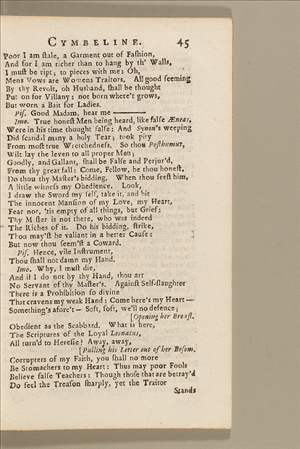 CYMBELINE. 45
Poor I am ſtale, a Garment out of Faſhion,
And for I am richer than to hang by th' Walls,
I muſt be ript; to pieces with me: Oh,
Mens Vows are Womens Traitors. All good ſeeming
By thy Revolt, oh Husband, ſhall be thought
Put on for Villany: not born where't grows,
But worn a Bait for Ladies.
Piſ. Good Madam, hear me
Imo. True honeſt Men being heard, like falſe Æneas,
Were in his time thought falſe: And Synon's weeping
Did ſcandal many a holy Tear; took pity
From moſt true Wretchedneſs. So thou Poſthumus,
Wilt lay the leven to all proper Men;
Goodly, and Gallant, ſhall be Falſe and Perjur'd,
From thy great fall: Come, Fellow, be thou honeſt,
Do thou thy Maſter's bidding. When thou ſeeſt him,
A little witneſs my Obedience. Look,
I draw the Sword my ſelf, take it, and hit
The innocent Manſion of my Love, my Heart,
Fear not, 'tis empty of all things, but Grief:
Thy Maſter is not there, who was indeed
The Riches of it. Do his bidding, ſtrike,
Thou may'ſt be valiant in a better Cauſe:
But now thou ſeem'ſt a Coward.
Piſ. Hence, vile Inſtrument,
Thou ſhalt not damn my Hand.
Imo. Why, I muſt die,
And if I do not by thy Hand, thou art
No Servant of thy Maſter's. Againſt Self-ſlaughter
There is a Prohibition ſo divine
That cravens my weak Hand: Come here's my Heart—
Something's afore't— Soft, ſoft, we'll no defence;
[Opening her Breaſt.
Obedient as the Scabbard. What is here,
The Scriptures of the Loyal Leonatus,
All turn'd to Hereſie? Away, away,
[Pulling his Letter out of her Boſom.
Corrupters of my Faith, you ſhall no more
Be Stomachers to my Heart: Thus may poor Fools
Believe falſe Teachers: Though thoſe that are betray'd
Do feel the Treaſon ſharply, yet the Traitor
Stands